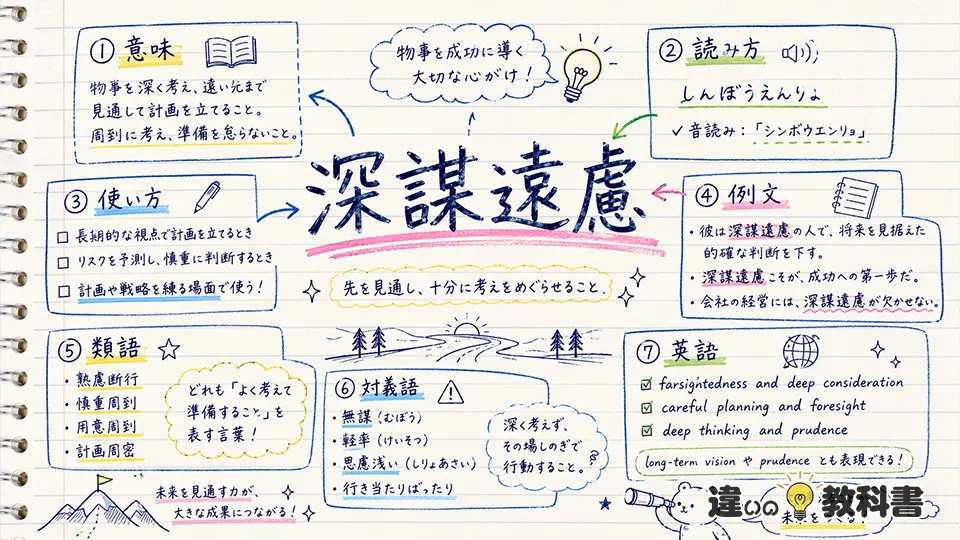 ① 意味
物事を深く考え、遠い先まで
見通して計画を立てること。
周到に考え、準備を怠らないこと。
物事を成功に導く
大切な心がけ！
② 読み方
しんぼうえんりょ
✓ 音読み：「シンボウエンリョ」
深謀遠慮
先を見通し、十分に考えをめぐらせること。
③ 使い方
□ 長期的な視点で計画を立てるとき
□ リスクを予測し、慎重に判断するとき
□ 計画や戦略を練る場面で使う！
④ 例文
・彼は深謀遠慮の人で、将来を見据えた
的確な判断を下す。
・深謀遠慮こそが、成功への第一歩だ。
・会社の経営には、深謀遠慮が欠かせない。
⑤ 類語
・熟慮断行
・慎重周到
・用意周到
・計画周密
どれも「よく考えて
準備すること」を
表す言葉！
未来を見通す力が、
大きな成果につながる！
⑥ 対義語
・無謀（むぼう）
・軽率（けいそつ）
・思慮浅い（しりょあさい）
・行き当たりばったり
深く考えず、
その場しのぎで
行動すること。
⑦ 英語
☑ farsightedness and deep consideration
☑ careful planning and foresight
☑ deep thinking and prudence
long-term vision や prudence とも表現できる！
違いの教科書